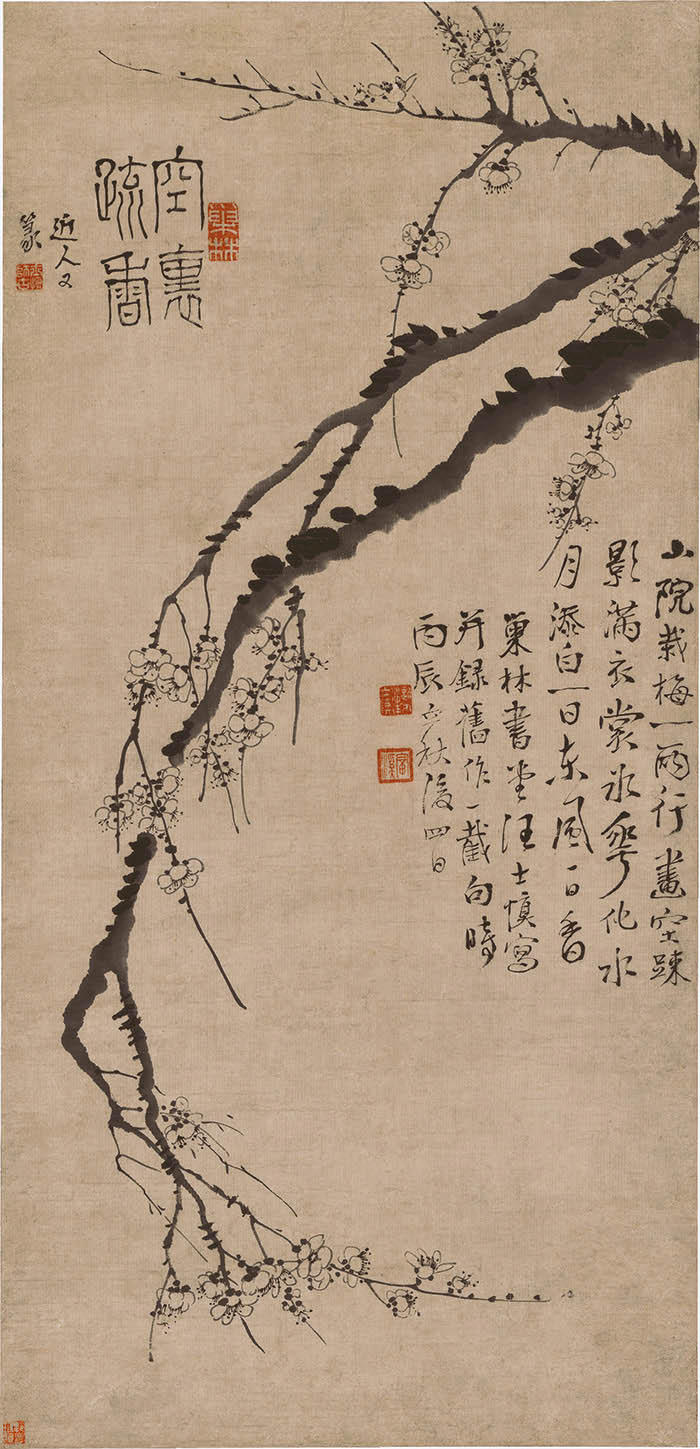 空裏
疏香
近人又
篆
巢林
山院栽梅一兩行畫空疎
影滿衣裳冰華化水
月添白一日東風一日香
巢林書堂汪士慎寫
并錄舊作一截句時
丙辰立秋後四日